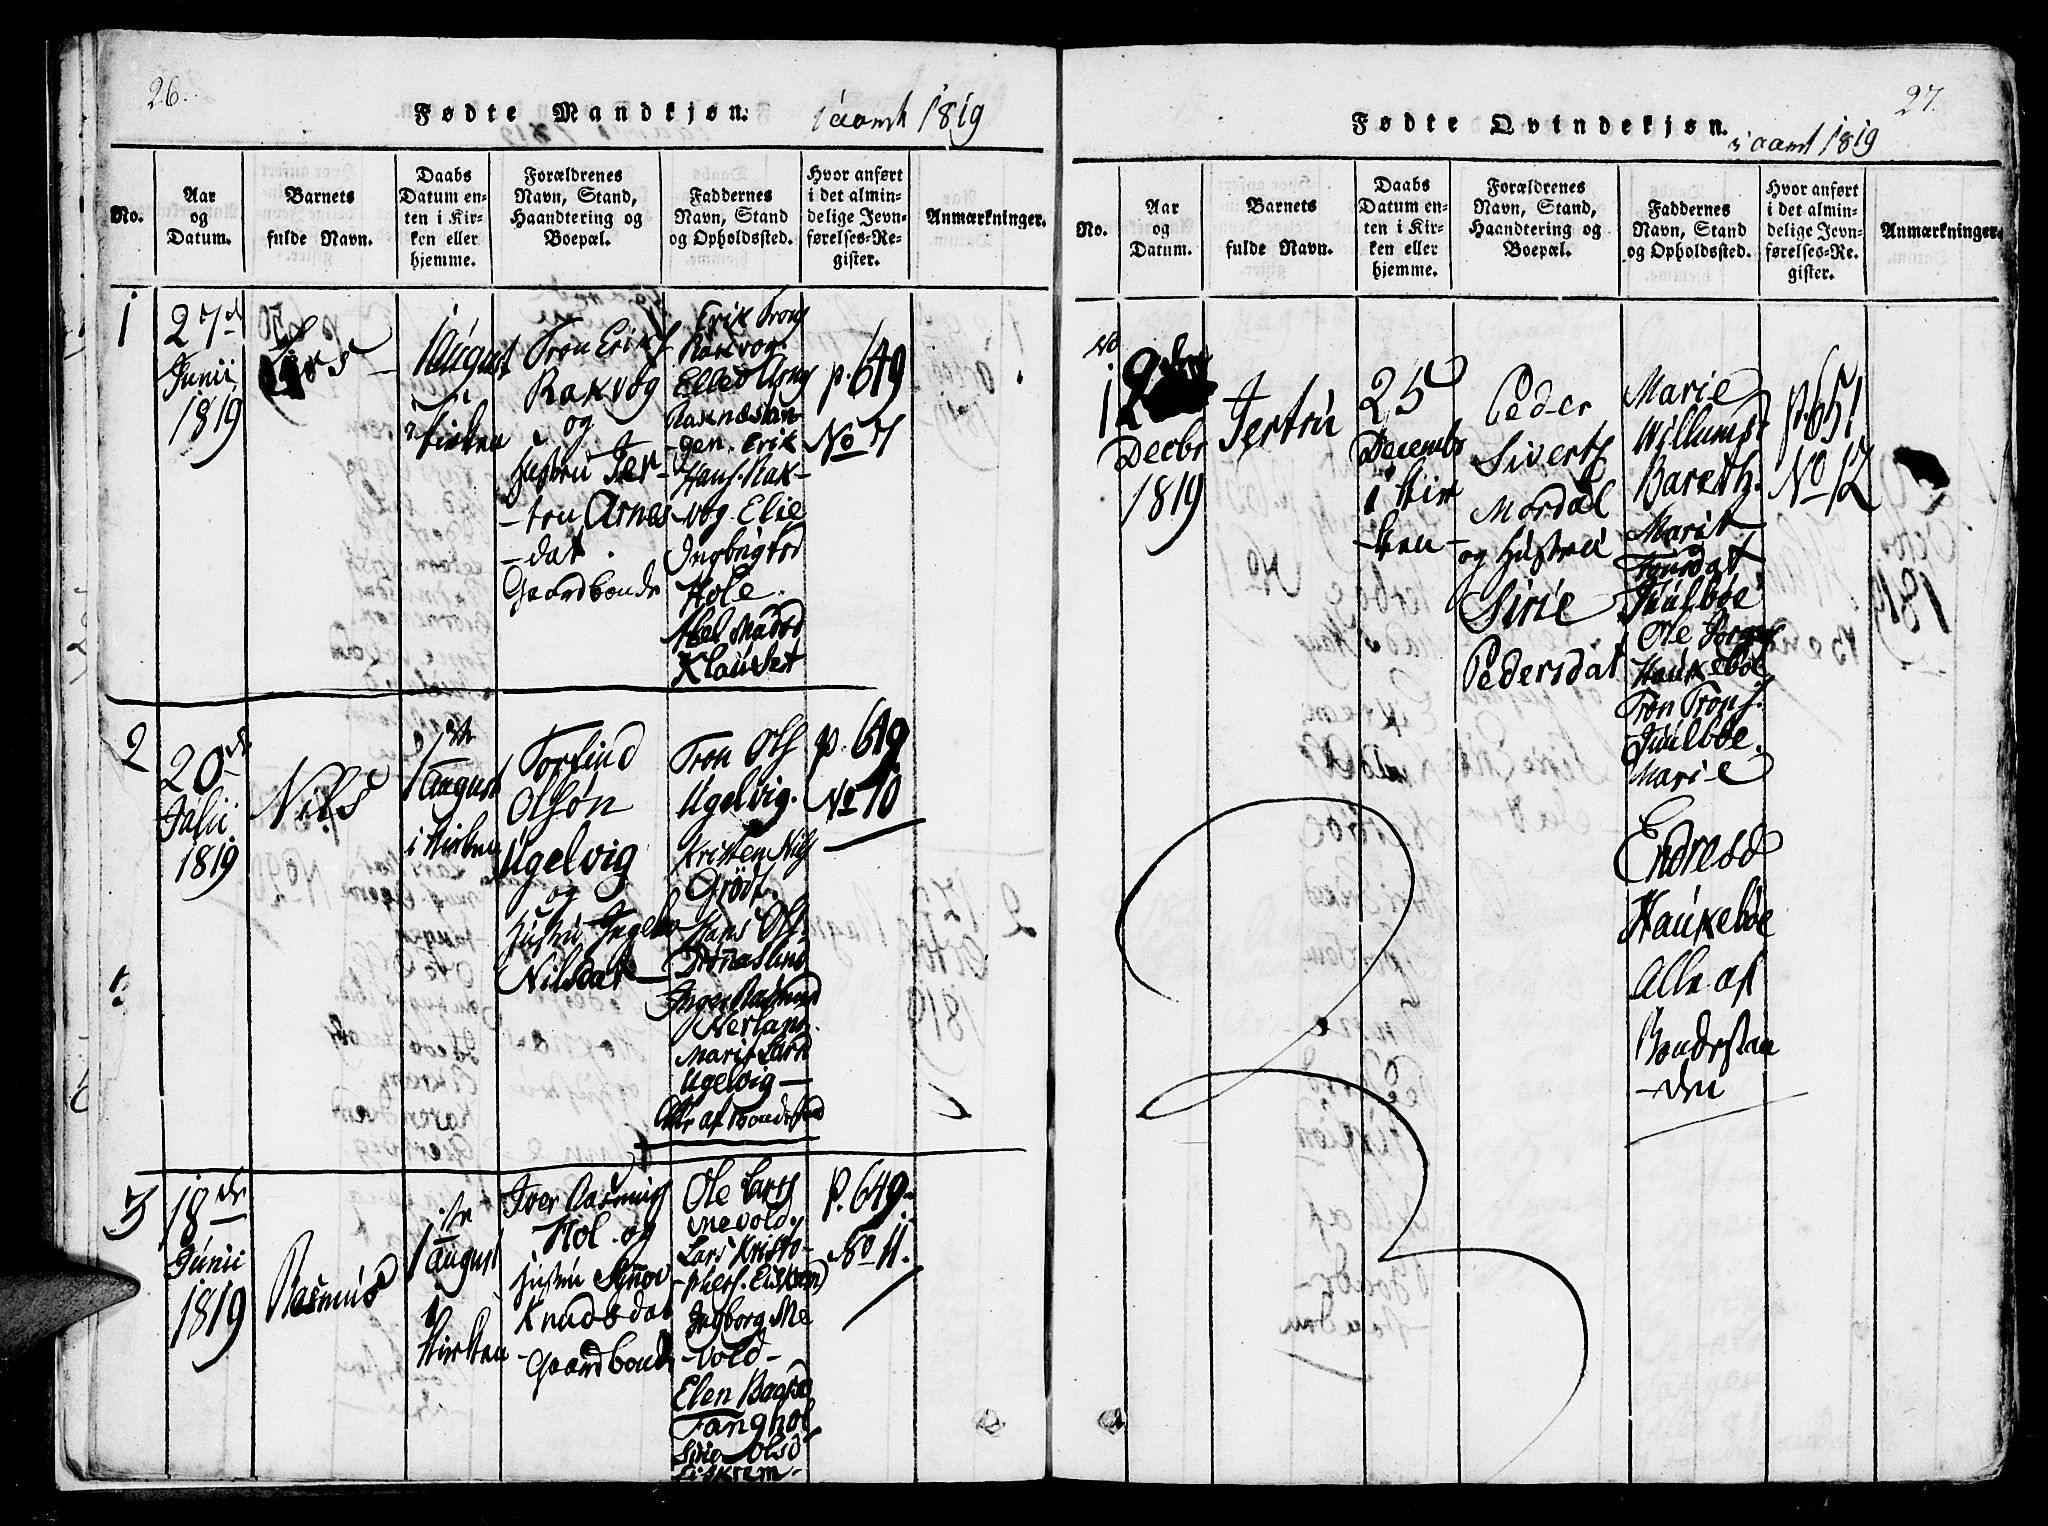 26.
Fødte Mandkjøn.
i aaret 1819
No.
Aar
og
Datum.
Barnets
fulde Navn.
Daabs
Datum en-
ten i Kir-
ken eller
hjemme.
Forældrenes
Navn, Stand,
Haandtering og
Boepæl.
Faddernes
Navn, Stand
og Opholdssted.
Hvor anført
i det almin-
delige Jevn-
førelses-Re-
gister.
Anmærkninger.
1
27de
Junii
1819
Lars
1 August
i Kirken
Tron Eriks
Rakvog
og
Hustru Jer-
-tru Arnes
-dat.
Gaardbonde
Erik Trons
Rakvog.
Elled Arns
Raknæstan-
gen. Erik
Hans. Rak-
-vog. Elie
Ingbrigtsd
Hole.
Abel Madsd
Klauset
p. 649
No 7
2
20de
Julii
1819
Nils
1ste
August
i Kirken
Torlind
Olsøn
Ugelvig
og
Hustru Ingebo
Nilsdat
Tron Ols
Ugelvig.
Kristen Nils
Grødt.
Hans Ols.
Trønæslind
Inger Rasmusd
Nerland.
Marit Larsd
Ugelvig
Alle af Bondestand
p. 649
No 10
3
18de
Junii
1819
Rasmus
1ste
August
i
Kirken
Iver Rasmus
Hol og
Hustru Synnov
Knudsdat
Gaardbonde
Ole Lars
Mevold
Lars Kristo-
-phers. Eiskrem
Ingborg Me
-vold-
Elen Bagsd
Tanghol
Sirie Olsd
Eiskrem-
p. 649.
No 11.
27.
Fødte Qvindekjøn.
i aaret 1819
No.
Aar
og
Datum.
Barnets
fulde Navn.
Daabs
Datum en-
ten i Kir-
ken eller
hjemme.
Forældrenes
Navn, Stand,
Haandtering og
Boepæl.
Faddernes
Navn, Stand
og Opholdssted.
Hvor anført
i det almin-
delige Jevn-
førelses-Re-
gister.
Anmærkninger.
No
1
Decbr
1819
Jertru
25
Decembr
i Kir
-ken-
Peder
Siverts
Mordal
og Hustru
Sirie
Pedersdat
Marie
Willumsd
Bareth.
Marit
Tronsdat
Juulbøe
Ole Jorgens
Haukebøe
Tron Trons.
Juulbøe.
Marie
Endresd
Haukebøe
Alle af
Bondestan
-den
p. 651
No 12